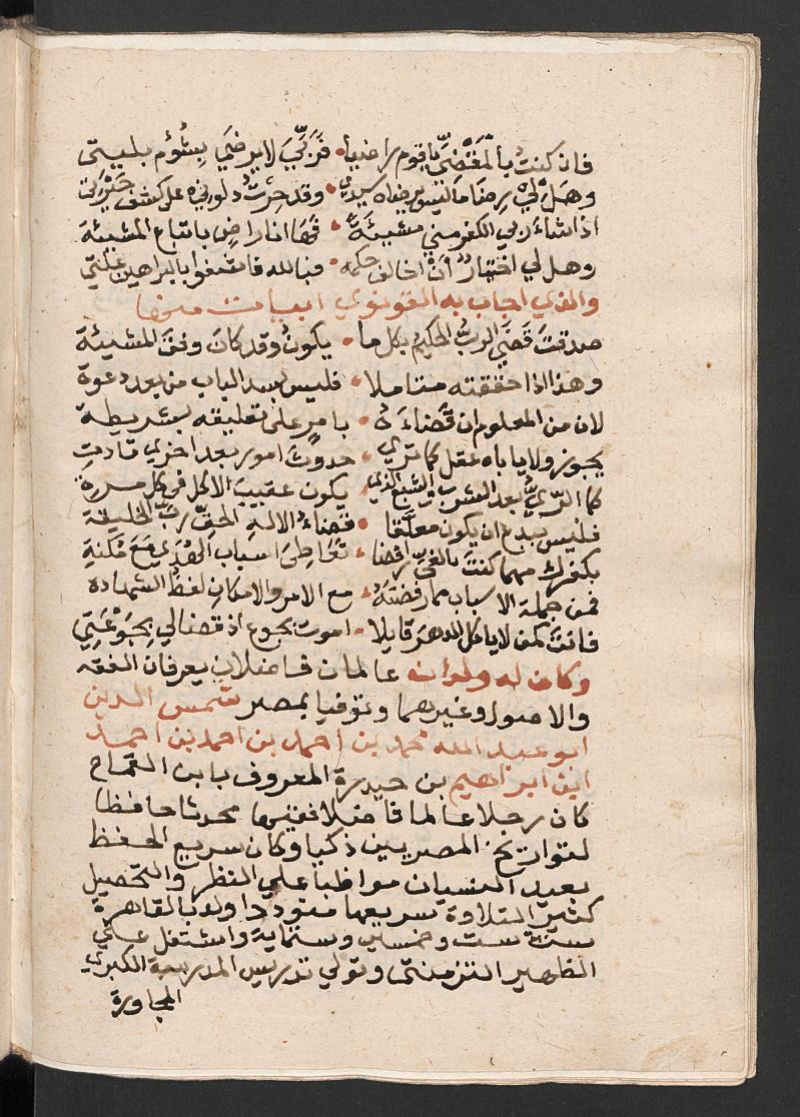 فان كنتُ بالمَقْضَيِّ يا قوم راضيا • فَرَبِّيَ لا يرضَي بِشُؤم بليتى
وهَل لي رِضَا ما ليس يرضاه سيدي • وقد حِرْتُ دلوني على كشف حَيْرَتي
اذا شاءَ ربي الكفر مني مشيئَةً • فَهَا انا راضٍ باتباع المشيئة
وهل لي اختيارٌ اَنْ اخالف حكمه • فبالله فاشفوا بالبراهين عِلَّتي
والذي اجاب به القونوي ابيات منها
صدقتَ قضَي الربُّ الحكيم بكل ما • يكونُ وقد كانَ وفقَ المشيئة
وهذا اذا حققته متاملا • فليس بسد الباب من بعد دعوة
لان من المعلوم ان قَضاءَهُ • بامرٍ على تعليقه بشريطة
يجوز ولا ياباه عقل كما تري • حدوثَ امور بعد اخري تادتِ
كما الرّيِّ بعد الشرب والشبع الذي • يكون عقيبَ الاكل في كل مرةِ
فليس ببدع ان يكون معلَّقا • قضاءُ الاله الحقّ ربِّ الخليقة
بكفرك مهما كنتَ بالغيّ رافضا • تَعَاطِىَ اسباب الهُدَي مَعَ مُكنةِ
فمن جملة الاسباب مما رفضتَهُ • مع الامر والامكانِ لفظُ الشهادة
فانتَ كمن لا ياكل الدهرَ قايلا • اموت بجوع اذ قضالي بجَوْعَتِي
وكان له ولدان عالمان فاضلان يعرفان الفقه
والاصول وغيرهما وتوفيا بمصر شمس الدين
ابو عبد الله محمد بن احمد بن احمد بن احمد
ابن ابراهيم بن حيدرة المعروف بابن القماح
كان رجلا عالما فاضلا فقيها محدثا حافظا
لتواريخ المصريين ذكيا وكان سريع الحفظ
بعيد النسيان مواظبا على النظر والتحصيل
كثير التلاوة سريعها متوددا ولد بالقاهرة
سنة ست وخمسين وستماية واشتغل على
الظهير التزمنتى وتولي تدريس المدرسة الكبري
المجاورة